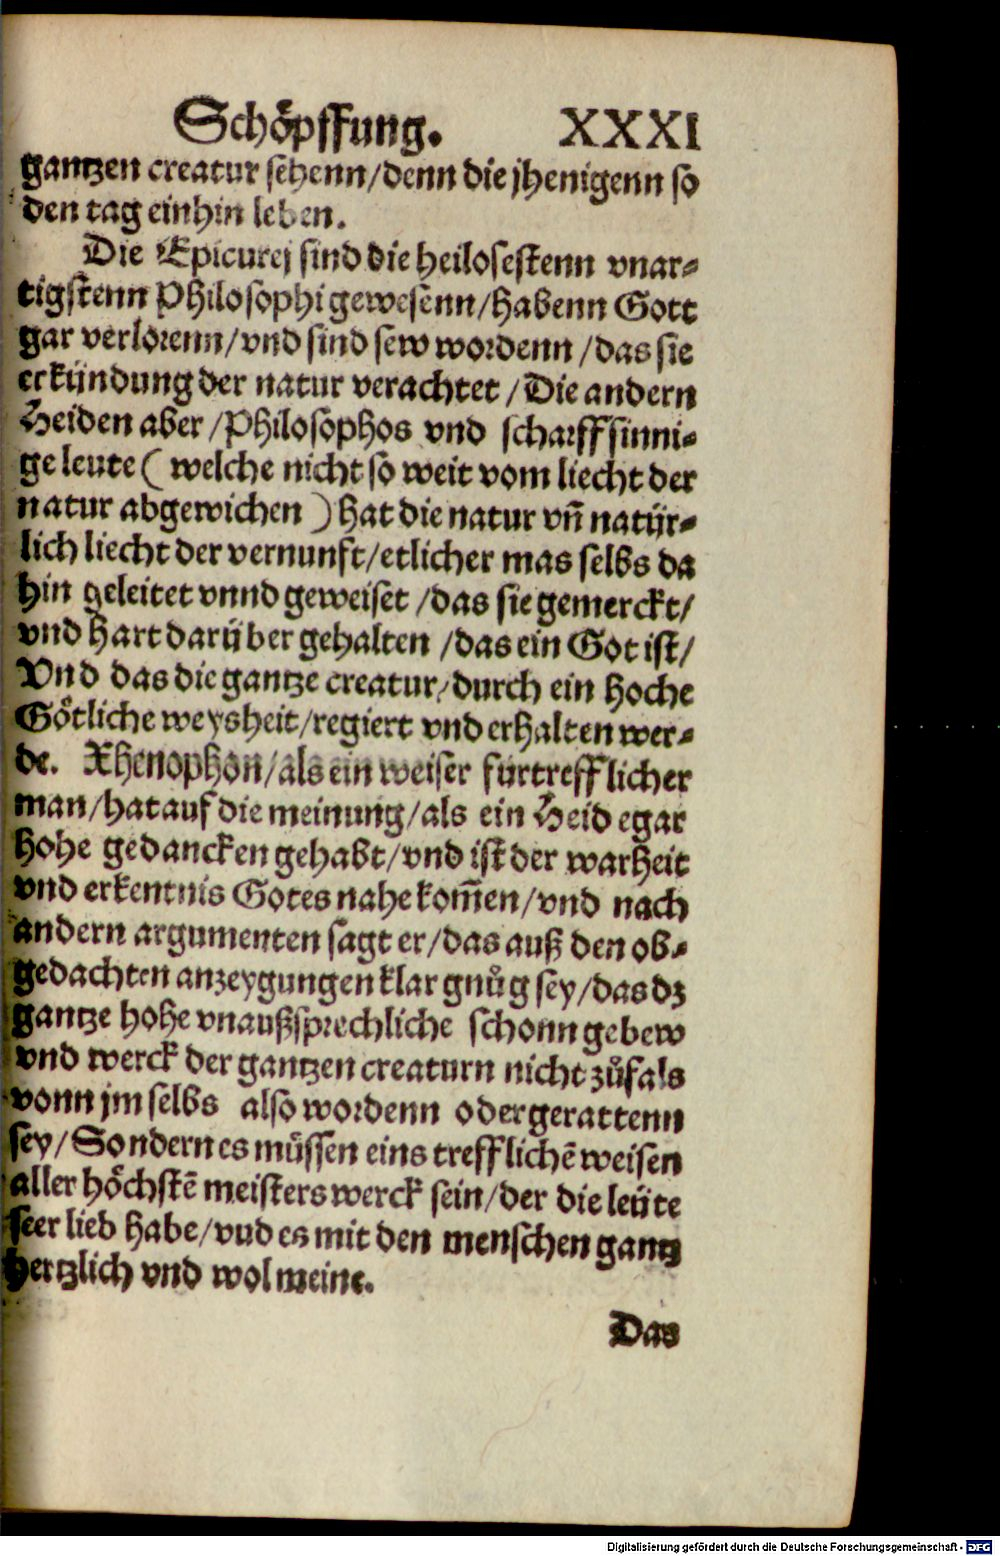 Schoͤpffung. XXXI
gantzen creatur sehenn/denn die jhenigenn so
den tag einhin leben.
Die Epicurej sind die heilosestenn vnar⸗
tigstenn Philosophi gewesenn/habenn Gott
gar verlorenn/vnd sind sew wordenn/das sie
erkündung der natur verachtet/Die andern
Heiden aber/Philosophos vnd scharffsinni⸗
ge leute (welche nicht so weit vom liecht der
natur abgewichen) hat die natur vñ natür⸗
lich liecht der vernunft/etlicher mas selbs da
hin geleitet vnnd geweiset/das sie gemerckt/
vnd hart darüber gehalten/das ein Got ist/
Vnd das die gantze creatur/durch ein hoche
Goͤtliche weysheit/regiert vnd erhalten wer⸗
de. Xhenophon/als ein weiser furtrefflicher
man/hat auf die meinung/als ein Heid egar
hohe gedancken gehabt/vnd ist der warheit
vnd erkentnis Gotes nahe kom̃en/vnd nach
andern argumenten sagt er/das auß den ob⸗
gedachten anzeygungen klar gnuͦg sey/das dz
gantze hohe vnaußsprechliche schonn gebew
vnd werck der gantzen creaturn nicht zuͦfals
vonn jm selbs also wordenn oder gerattenn
sey/Sondern es muͤssen eins trefflichẽ weisen
aller hoͤchstẽ meisters werck sein/der die leüte
seer lieb habe/vud es mit den menschen gantz
hertzlich vnd wol meine.
Das
Digitalisierung gefördert durch die Deutsche Forschungsgemeinschaft - DFG